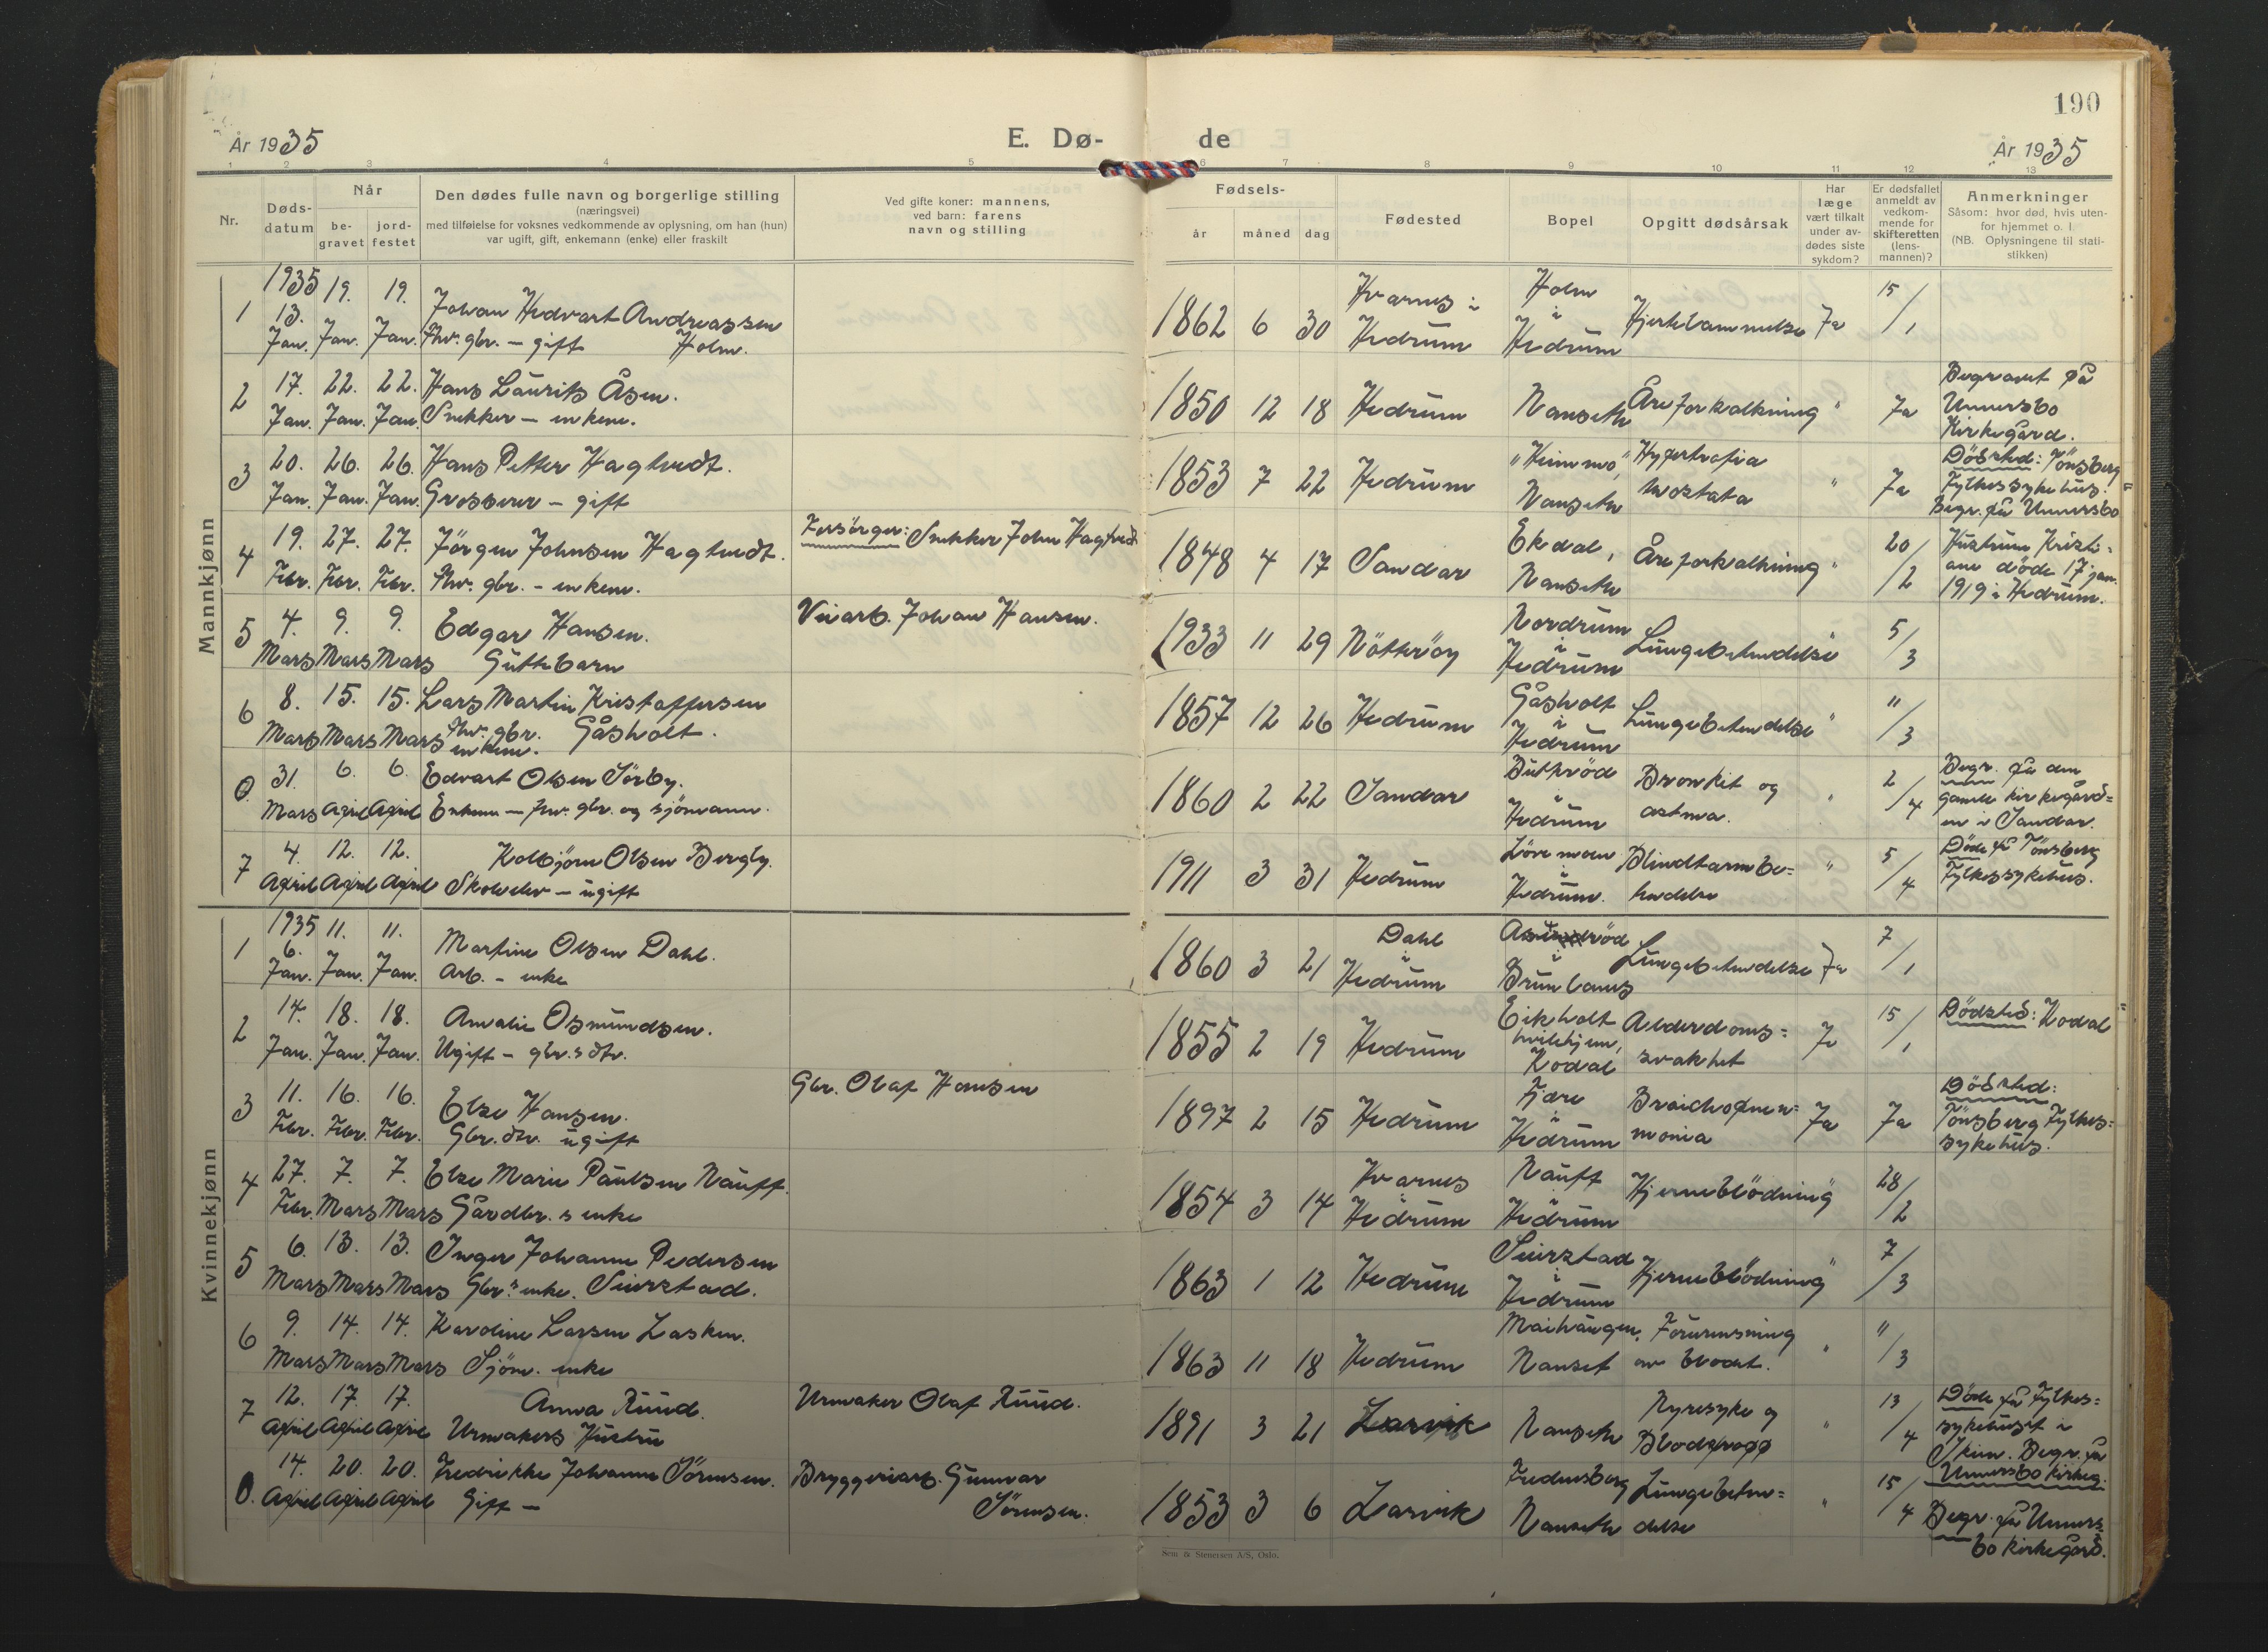 190
År 1935
E. Dø-
de
År 1935
1 2 3 4 5 6 7 8 9 10 11 12 13
Nr.
Døds-
datum
Når
be-
gravet
jord-
festet
Den dødes fulle navn og borgerlige stilling
(næringsvei)
med tilføielse for voksnes vedkommende av oplysning, om han (hun)
var ugift, gift, enkemann (enke) eller fraskilt
Ved gifte koner: mannens,
ved barn: farens
navn og stilling
Fødsels-
år måned dag
Fødested
Bopel
Opgitt dødsårsak
Har
læge
vært tilkalt
under av-
dødes siste
sykdom?
Er dødsfallet
anmeldt av
vedkom-
mende for
skifteretten
(lens-
mannen)?
Anmerkninger
Såsom: hvor død, hvis uten-
for hjemmet o. l.
(NB. Oplysningene til stati-
stikken)
Mannkjønn
1935 19. 19.
1 13. Johan Hedvart Andreassen
Jan. Jan. Jan. Fhv. gbr. – gift Holm.
Kvarnes i Holm 15/1
1862 6 30 Hedrum i Hedrum Hjertelammelse Ja
2 17. 22. 22. Hans Laurits Åsen.
Jan. Jan. Jan. Snekker – enkem.
1850 12 18 Hedrum Nanseth Åreforkalkning " Ja
Begravet på
Unnersbo
Kirkegård.
3 20. 26. 26. Hans Petter Hagtvedt.
Jan. Jan. Jan. Grosserer – gift
1853 7 22 Hedrum "Heimmo" Nanseth
Hypertrofia
" Ja
Dödsted: Tönsberg
Fylkessykehus.
Begr. på Unnersbo
4 19. 27. 27. Jörgen Johnsen Hagtvedt.
Febr. Febr. Febr. Fhv. gbr. – enkem.
Forsörger: Snekker John Hagtvedt
1848 4 17 Sandar Ekdal, Nanseth Åreforkalkning " 20/2
Hustrum Kristi-
ane döde 17 jan.
1919 i Hedrum.
5 4. 9. 9. Edgar Hansen.
Mars Mars Mars Guttebarn
Veiarb. Johan Hansen.
1933 11 29 Nötteröy Nordrum i Hedrum Lungebetendelse " 5/3
6 8. 15. 15. Lars Martin Kristoffersen
Mars Mars Mars Fhv. gbr. Gåsholt.
enkem.
1857 12 26 Hedrum Gåsholt i Hedrum Lungebetendelse " 11/3
0. 31. 6. 6. Edvart Olsen Sörby.
Mars April April Enkem – fhv. gbr. og sjömann.
1860 2 22 Sandar i Hedrum
Bronkit og
astma.
" 2/4
Begr. på den
gamle kirkegård=
en i Sandar.
7 4. 12. 12. Kolbjörn Olsen Bergby.
April April April Skoleelev – ugift
1911 3 31 Hedrum Löve moen i Hedrum.
Blindtarmbe=
tendelse
" 5/4
Döde på Tönsberg
Fylkessykehus.
Kvinnekjønn
1935 11. 11.
1 6. Martine Olsen Dahl.
Jan. Jan. Jan. Arb. – enke
1860 3 21 Dahl i Hedrum i Brunlanes Lungebetendelse Ja 7/1
2 14. 18. 18. Amalie Osmundsen.
Jan. Jan. Jan. Ugift – gbr.s dtr.
1855 2 19 Hedrum Eikholt hvilehjem, Kodal
Alderdoms=
svakhet
Ja 15/1
Dödsted: Kodal
3 11. 16. 16. Else Hansen.
Febr. Febr. Febr. Gbr. dtr. ugift
Gbr. Olaf Hansen
1897 2 15 Hedrum Fjære i Hedrum
Ja Ja
Dödsted:
Tönsberg Fylkes=
sykehus.
4 27. 7. 7. Else Marie Paulsen Nauff.
Febr. Mars Mars Gårdbr.s enke
1854 3 14 Kvarnes i Hedrum Nauff i Hedrum Hjerneblödning " 28/2
5 6. 13. 13. Inger Johanne Pedersen
Mars Mars Mars Gbr.s enke. Seierstad.
1863 1 12 Hedrum Seierstad i Hedrum Hjerneblödning " 7/3
6 9. 14. 14. Karoline Larsen Lasken.
Mars Mars Mars Sjöm. enke
1863 11 18 Hedrum Maihaugen, Nanset
Forurensning
av blodet.
" 11/3
7 12. 17. 17. Anna Ruud.
April April April Urmakers Hustru
Urmaker Olaf Ruud.
1891 3 21 Larvik Nanseth
Nyresyke og
Blodpropp
" 13/4
Döde på Fylkes=
sykehuset i
Skien. Begr. på
Unnersbo kirkeg.
0. 14. 20. 20. Fredrikke Johanne Sörensen.
April April April Gift –
Bryggeriarb. Gunnar
Sörensen.
1853 3 6 Larvik Fredensborg Nanseth
Lungebeten=
delse
" 15/4
Begr. på Unners=
bo kirkegård.
Sem & Stenersen A/S, Oslo.